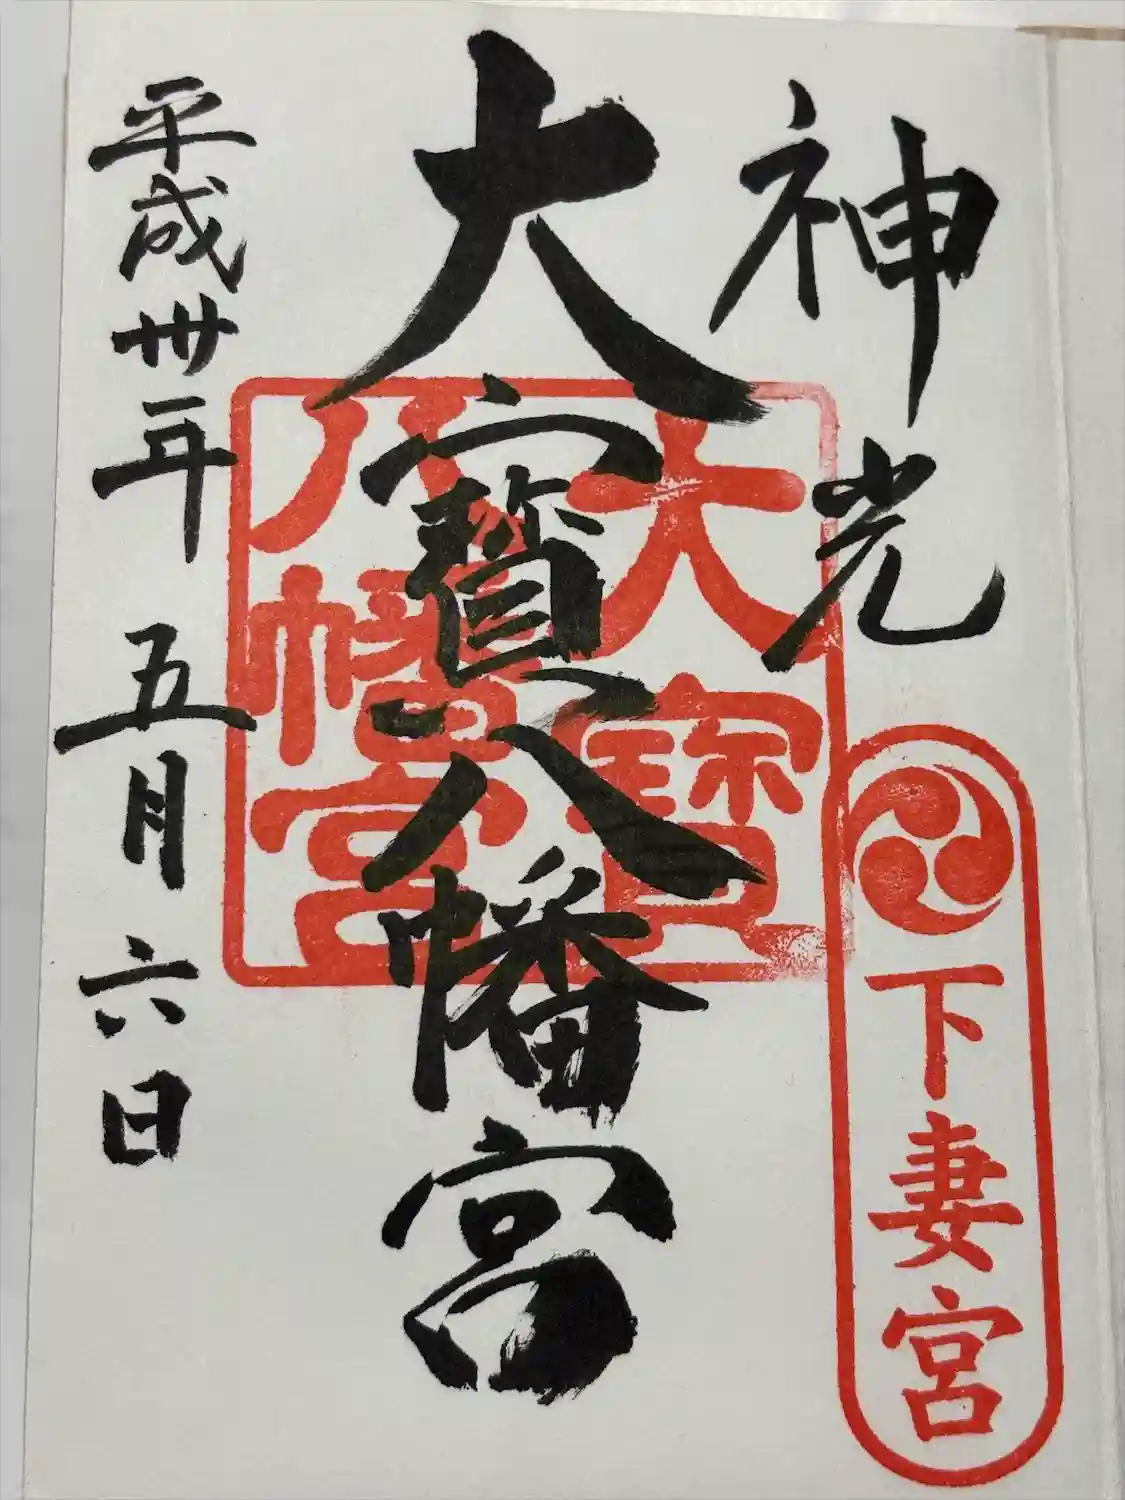 神光
下妻宮
大寳八幡宮
大寳
八幡宮
平成卅年 五月 六日